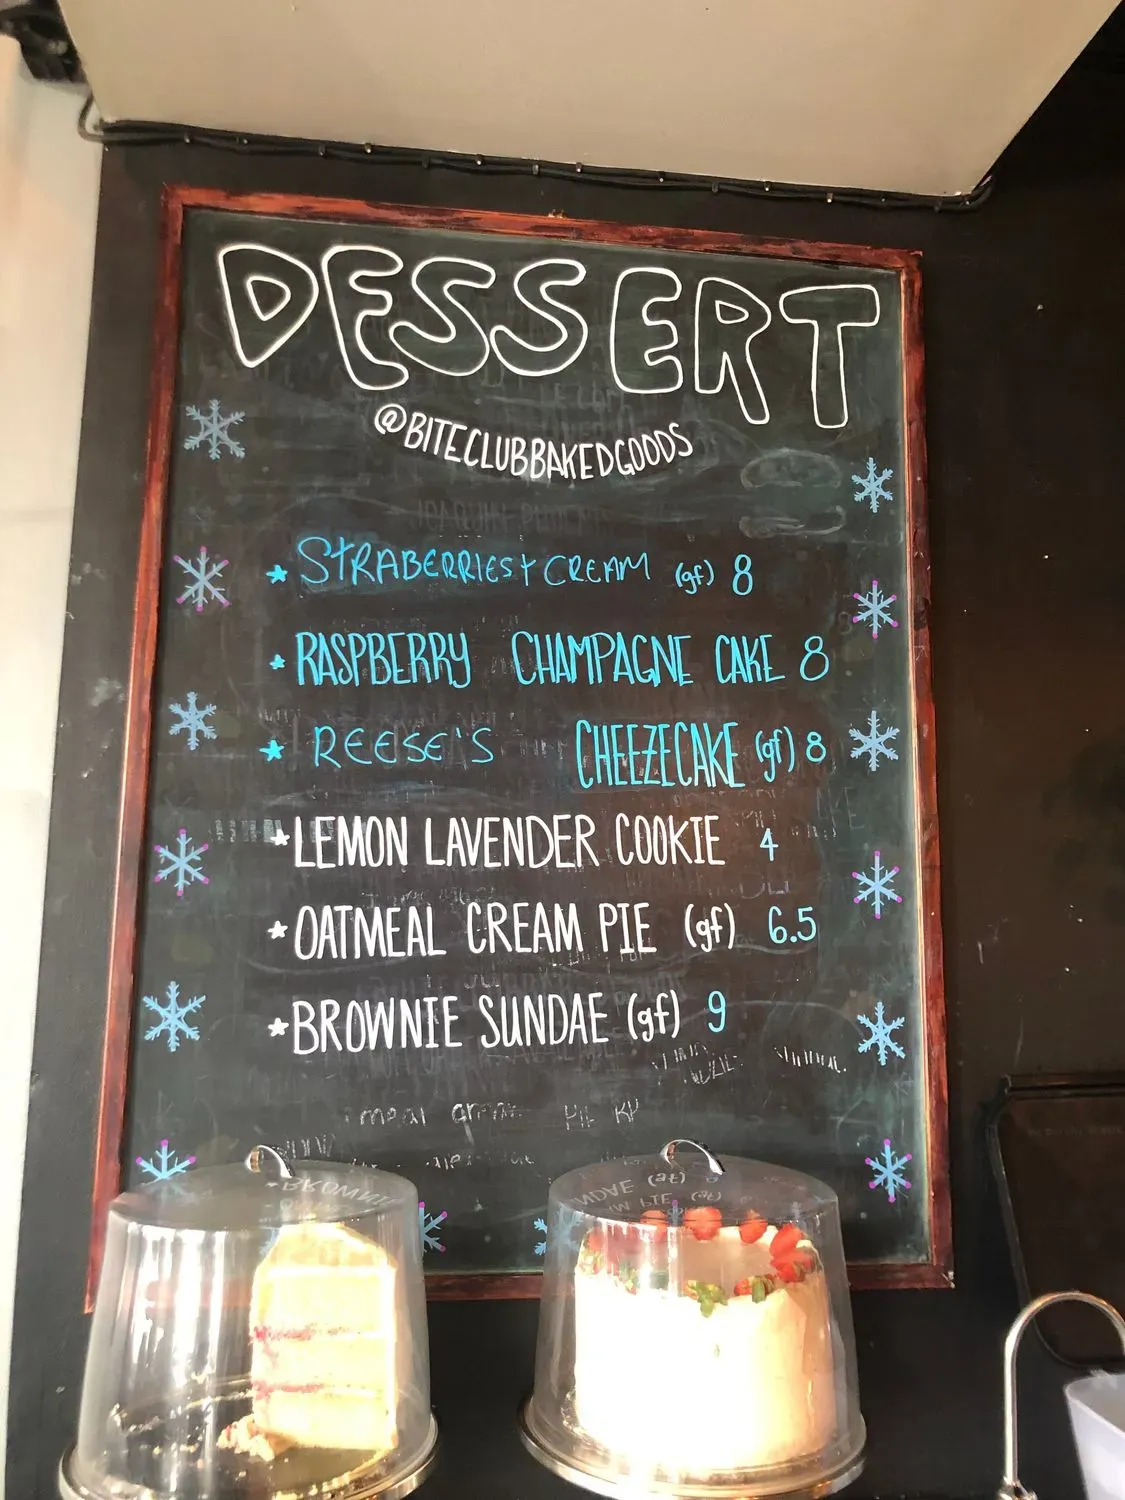 DESSERT
@BITECLUBBAKEDGOODS
★ STRABERRIES + CREAM (gf) 8
★ RASPBERRY CHAMPAGNE CAKE 8
★ REESE'S CHEEZECAKE (gf) 8
★ LEMON LAVENDER COOKIE 4
★ OATMEAL CREAM PIE (gf) 6.5
★ BROWNIE SUNDAE (gf) 9